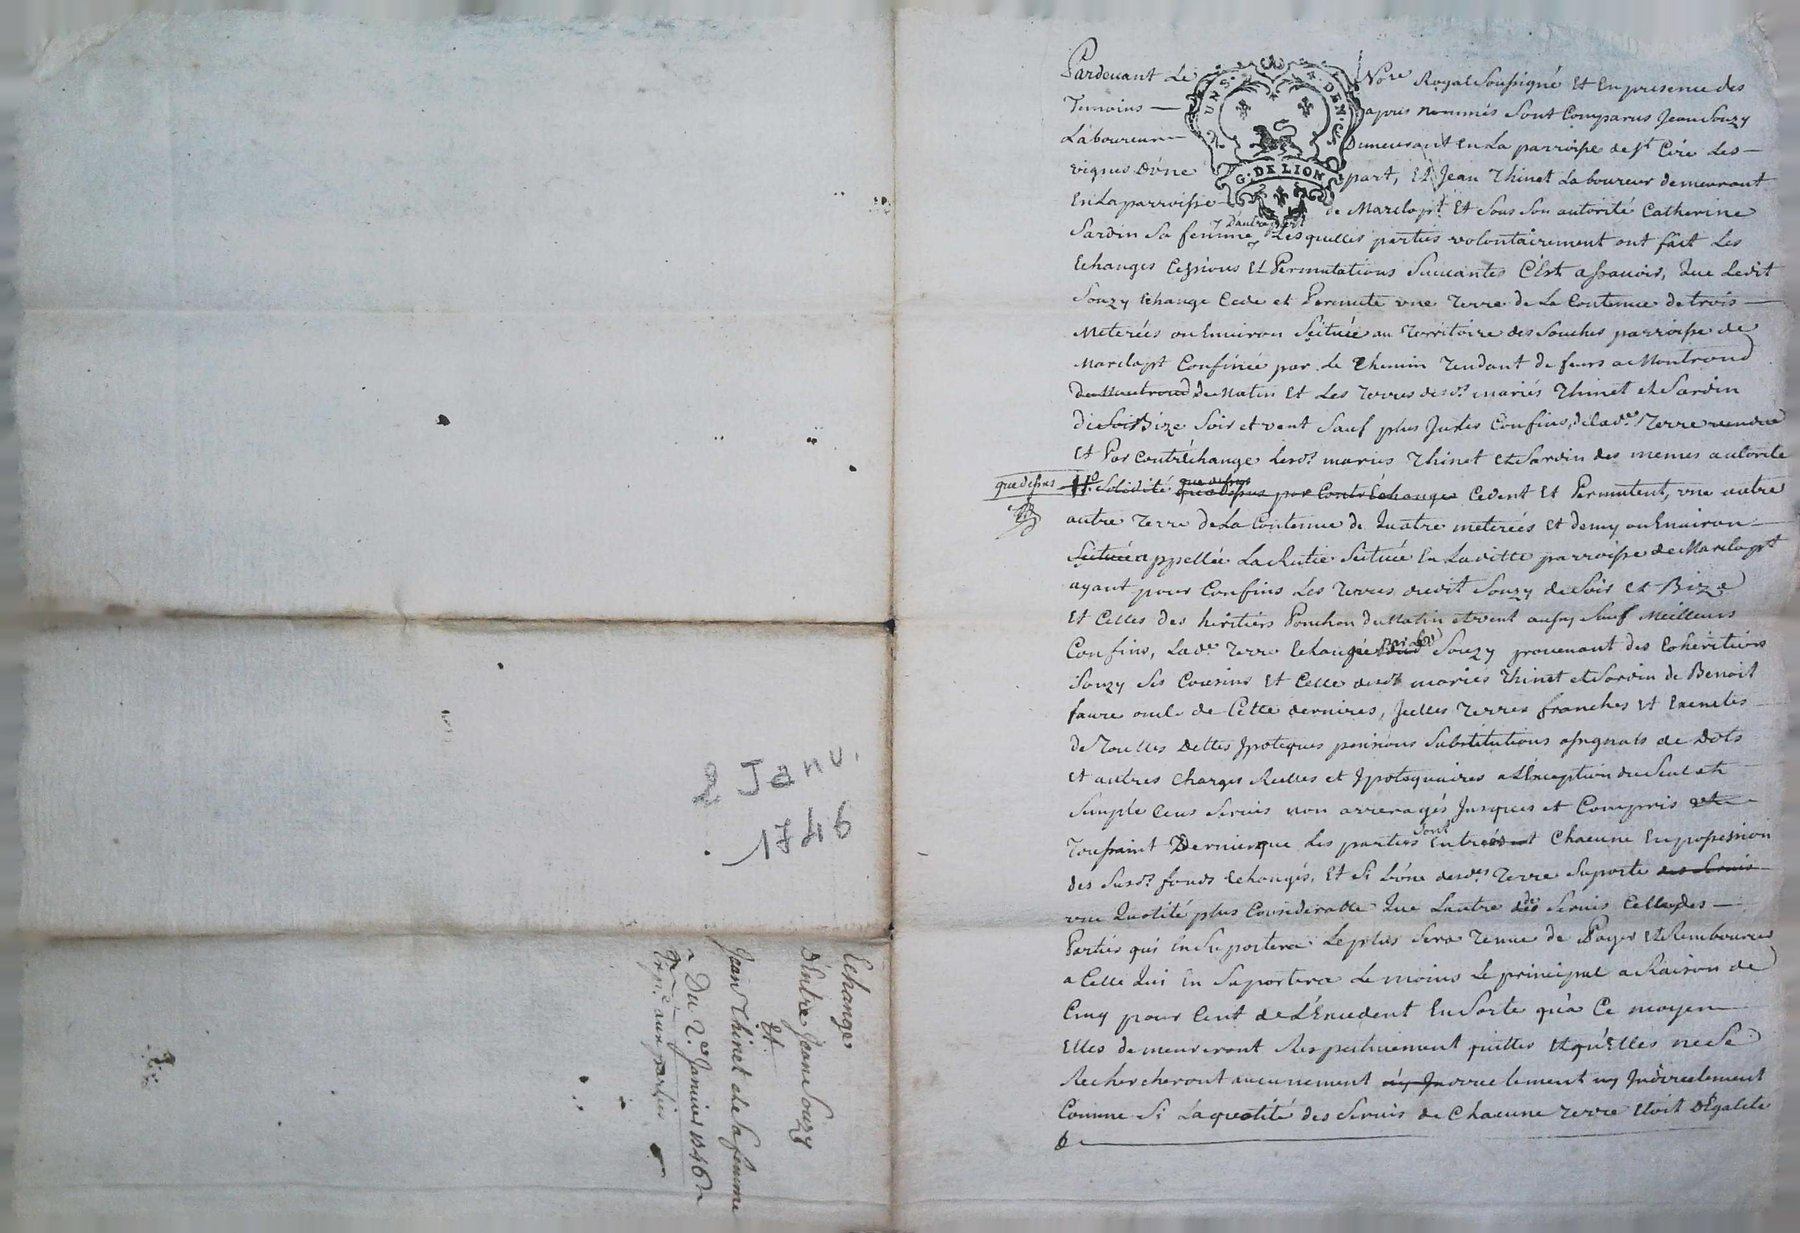 Pardevant Le Nore Royal Soussigné Et En presence des
Temoins — apres nommés Sont Comparus Jean Souzy
Laboureur — Demeurant En La parroisse de St Cire Les —
vignes D'une part, Et Jean Thinet Laboureur demeurant
En La parroisse de Marclopt Et Sous Son autorité Catherine
D'autre part
Sardin Sa femme Lesquelles parties volontairement ont fait Les
Echanges Cessions Et Permutations Suivantes C'Est assavoir, Que Ledit
Souzy Echange Cede et Permute une Terre de La Contenue de trois —
Meterées ou Environ Scituée au Territoire des Souches parroisse de
Marclopt Confinée par Le Chemin Tendant de feurs a Montrond
de Montrond de Matin Et Les Terres desds mariés Thinet et Sardin
de Soir Bize Soir et vent Sauf plus Justes Confins, de lade Terre
Et Par Contréchange Lesds mariés Thinet et Sardin des memes autorité
que dessus Solidité que dessus par Contréchange Cedent Et Permutent, une autre
autre Terre de La Contenue de Quatre meterées Et demy ou Environ —
Scituée appellée La Rutie Scituée En Laditte parroisse de Marclopt
ayant pour Confins Les Terres dudit Souzy de Soir et Bize
Et Celles des héritiers Ponchon de Matin et vent aussy Sauf Meilleurs
Confins, Lade Terre Echangée par led Souzy provenant des Cohéritiers
Souzy Ses Cousins Et Celle desds mariés Thinet et Sardin de Benoit
faure oncle de Cette derniere, Icelles Terres franches Et Exemptes
de Touttes Dettes Ipoteques pensions Substitutions assignats de Dots
Et autres Charges Réelles et Ipotequaires a L'Exception du Seul et
Simple Cens Servis non arreragés Jusques et Compris
Sont
Toussaint Dernier que Les parties Entrées Chacune En possession
des Susds fonds Echangés, Et Si L'une desdes Terre Suporte des Servis
une Quotité plus Considerable Que Lautre des Servis Celle des —
Parties qui En Suportera Le plus Sera Tenue de Payer Et Rembourcer
a Celle Qui En Suportera Le moins Le principal a Raison de
Cinq pour Cent de L'Excedent En Sorte qu'a Ce moyen
Elles demeureront Respectivement quittes Et qu'Elles ne Se
Rechercheront aucunement ny Directement ny Indirectement
Comme Si La quotité des Servis de Chacune Terre Etoit D'Egalité
2 Janv.
1746
Echange
D'Entre Jean Souzy
Et
Jean Thinet et Sa femme
Du 2e Janvier 1746
Exp.é aux parties